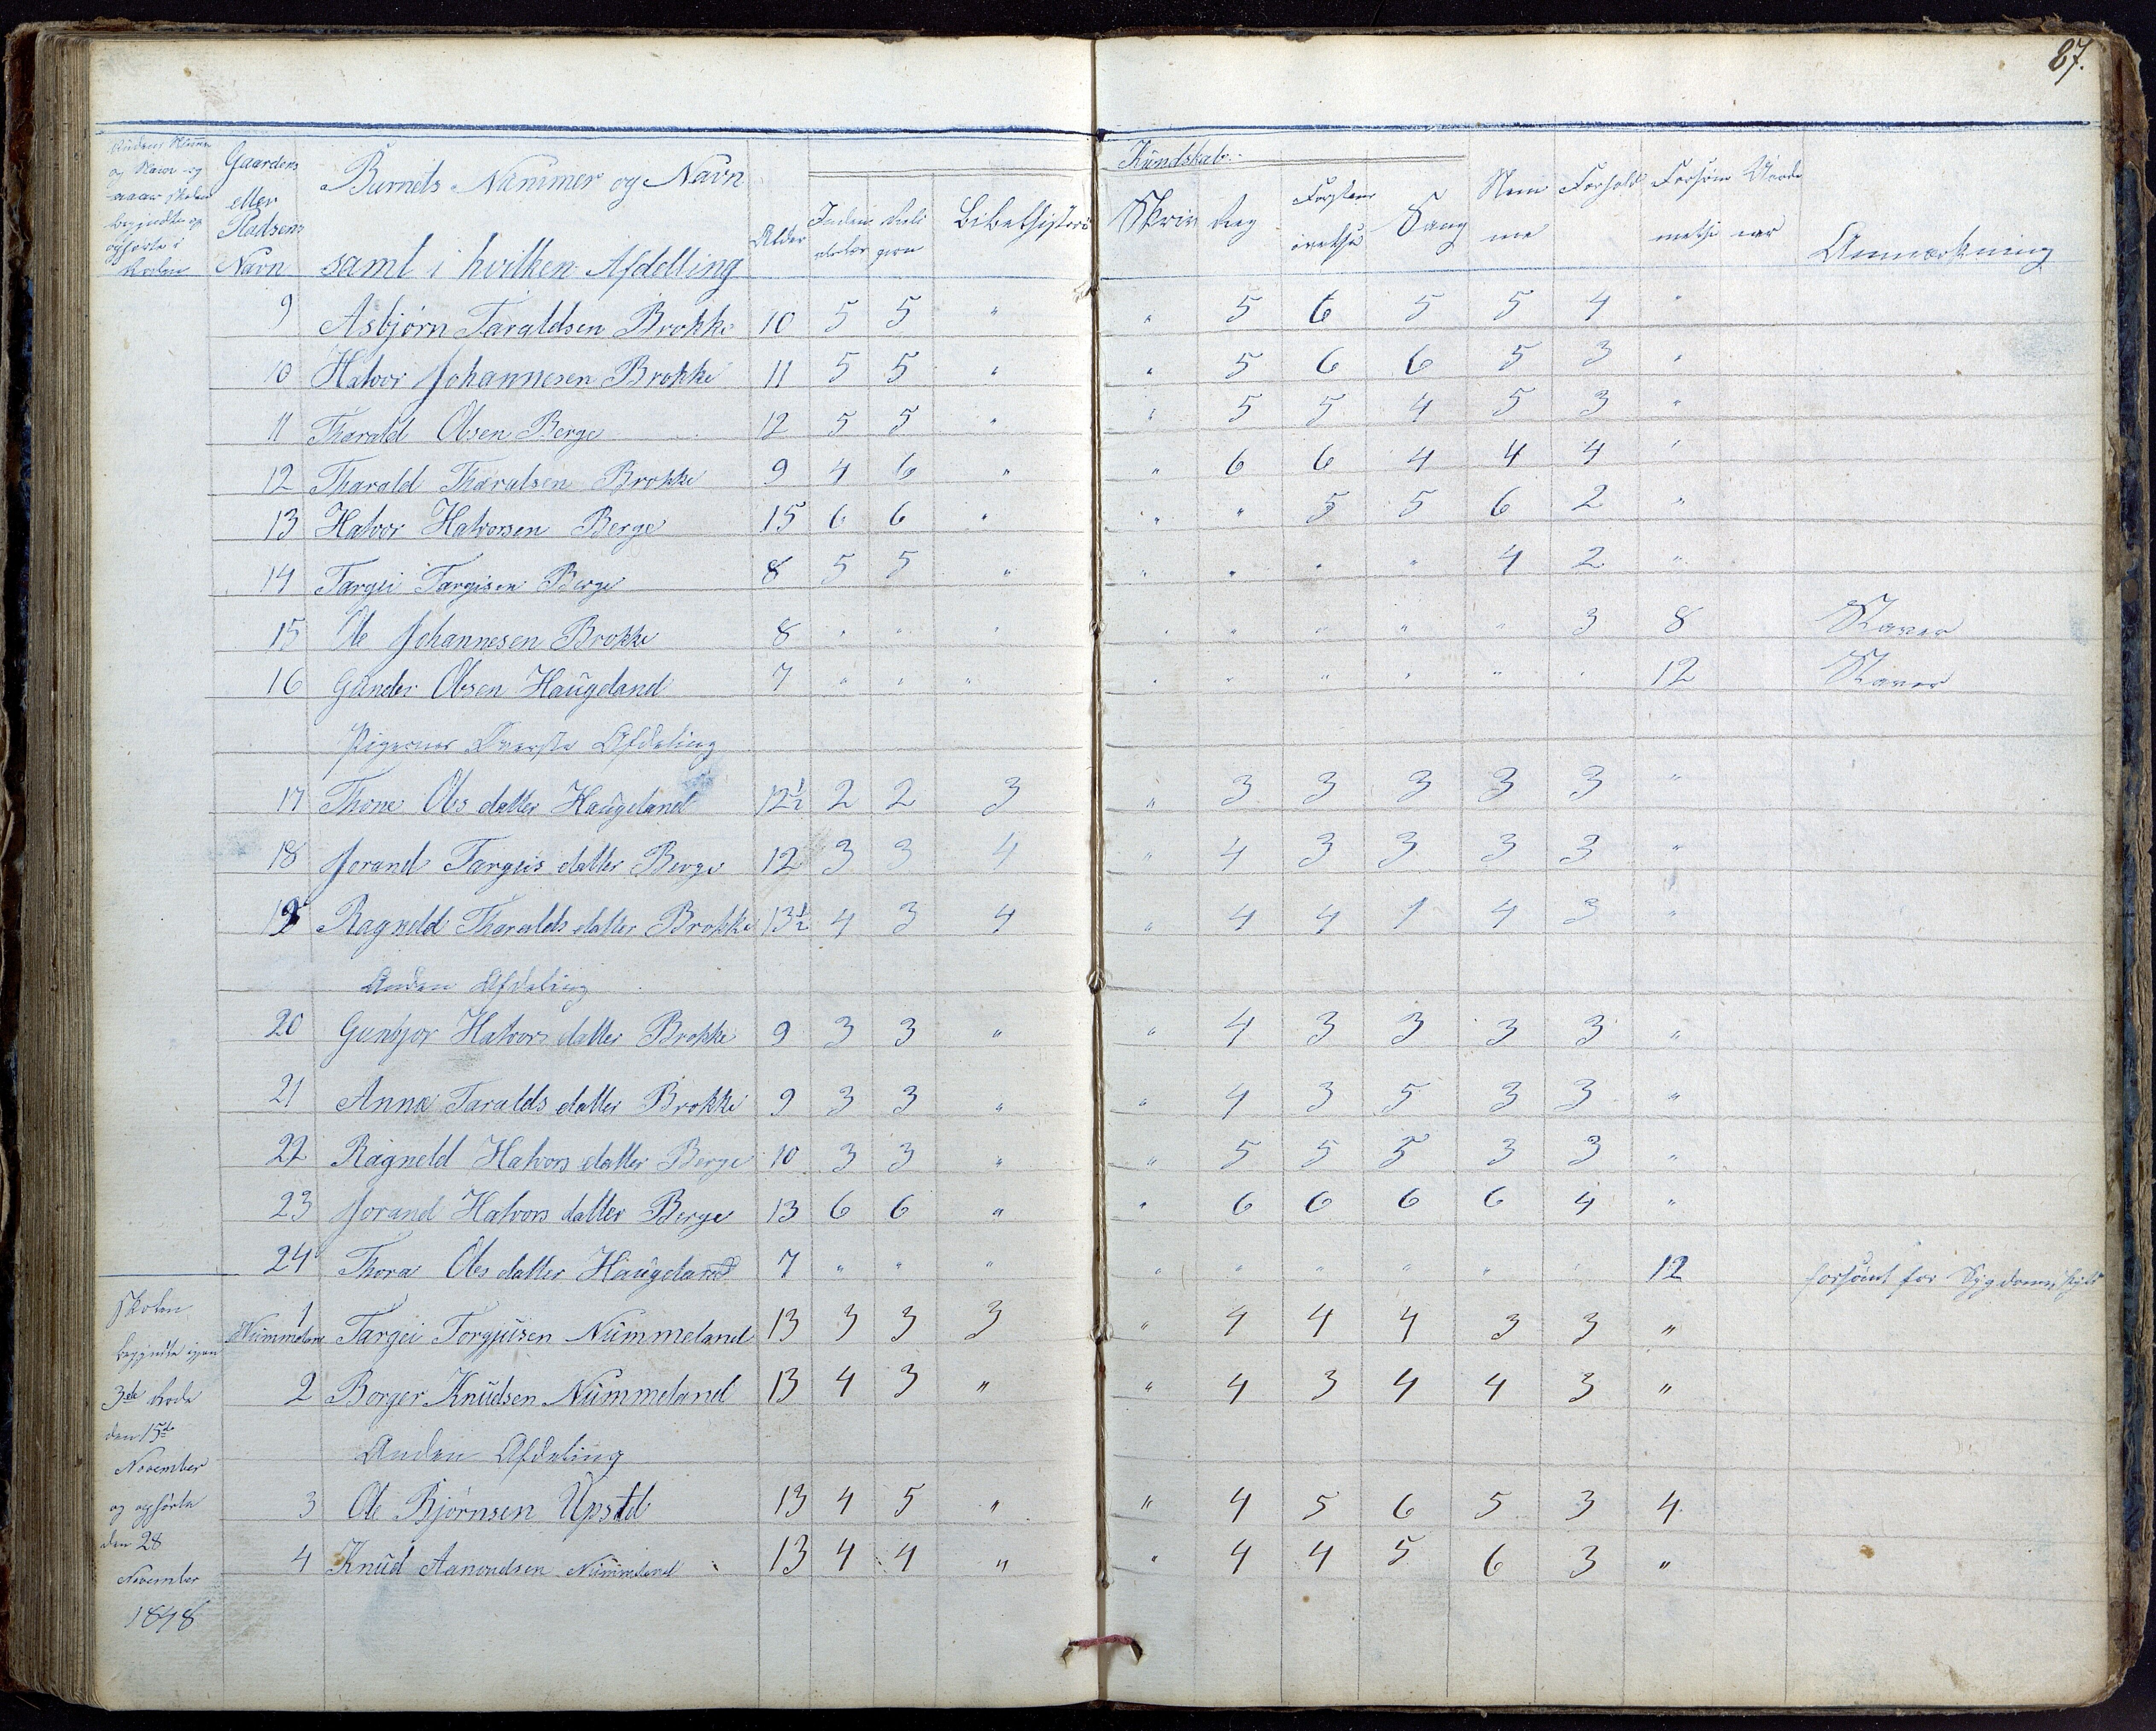 87.
Rodens Numer og Navn og naar skolen begyndte og ophørte i Roden
Gaardens eller Pladsens Navn
Barnets Nummer og Navn samt i hvilken Afdelling
Alder
Kundskab
Religion
Bibelhistorie
Skriv
Reg
Sang
Nemme
Forhold
Forsømmelse
Anmærkning
9 Asbjørn Taraldsen Brokke 10 5 5 " " 5 6 5 5 4 "
10 Halvor Johannesen Brokke 11 5 5 " " 5 6 6 5 3 "
11 Tharald Olsen Berge 12 5 5 " " 5 5 4 5 3 "
12 Tharald Tharalsen Brokke 9 4 6 " " 6 6 4 4 4 "
13 Halvor Halvorsen Berge 15 6 6 " " " 5 5 6 2 "
14 Targei Targisen Berge 8 5 5 " " " " " 4 2 "
15 Ole Johannesen Brokke 8 " " " " " " " " 3 8 Staver
16 Gunder Olsen Haugeland 7 " " " " " " " " " 12 Staver
Pigernes Øverste Afdeling
17 Thone Ols datter Haugeland 12½ 2 2 3 " 3 3 3 3 3 "
18 Jorand Targeis datter Berge 12 3 3 4 " 4 3 3 3 3 "
19 Ragneld Tharalds datter Brokke 13½ 4 3 4 " 4 4 1 4 3 "
Anden Afdeling
20 Gunbjor Halvors datter Brokke 9 3 3 " " 4 3 3 3 3 "
21 Anna Taralds datter Brokke 9 3 3 " " 4 3 5 3 3 "
22 Ragneld Halvors datter Berge 10 3 3 " " 5 5 5 3 3 "
23 Jorand Halvors datter Berge 13 6 6 " " 6 6 6 6 4 "
24 Thora Ols datter Haugeland 7 " " " " " " " " " 12 forsømt for Sygdoms skyld
Skolen begyndte igjen 3de Rode den 15de November og ophørte den 28 November 1848
Nummeland 1 Targei Torgjusen Nummeland 13 3 3 3 " 4 4 4 3 3 "
2 Borger Knudsen Nummeland 13 4 3 " " 4 3 4 4 3 "
Anden Afdeling
3 Ole Bjørnsen Upstd 13 4 5 " " 4 5 6 5 3 4
4 Knud Aanondsen Nummeland 13 4 4 " " 4 4 5 6 3 "